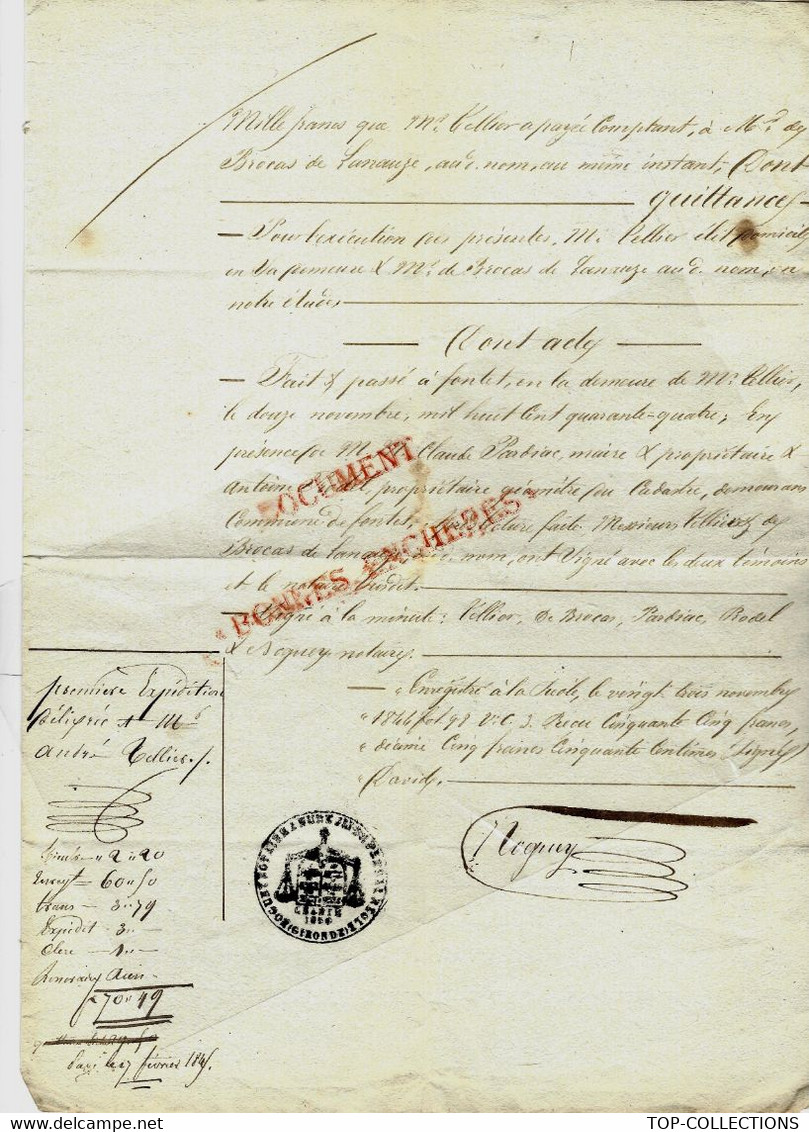 Mille francs que Mr. Tellier a payée Comptant, à Mr. de
Brocas de Lanauze, au d. nom, au même instant, Dont
quittance
Pour l'exécution des présentes, M. Tellier élit domicile
en sa demeure & Mr. de Brocas de Lanauze au d. nom, en
notre étude
Dont acte
Fait & passé à fontet, en la demeure de Mr. Tellier,
le douze novembre, mil huit cent quarante-quatre; En
présence de M. Claude Pardiac, maire & propriétaire &
Antoine propriétaire géomètre du Cadastre, demeurans
Commune de fontet, lecture faite Messieurs Tellier & de
Brocas de Lanauze, au d. nom, ont signé avec les deux témoins
et le notaire susdit.
Signé à la minute: Tellier, De Brocas, Pardiac, Rodel
& Noguey notaire.
"Enregistré à la Réole, le vingt trois novembre
"1844 fol 98 Vo. C. 3. Reçu Cinquante Cinq francs,
"décime Cinq francs Cinquante Centimes Signé
David.
Noguey
DOCUMENT
BONNES ENCHERES
première Expédition
délivrée à Mr.
André Tellier
2 " 20
60 " 50
trans - 3 " 79
Expédit - 3 "
Clerc - 1 "
Honoraires
70 " 49
Payé le 17 février 1845.
NOGUEY NOTAIRE
(GIRONDE)
TOP-COLLECTIONS